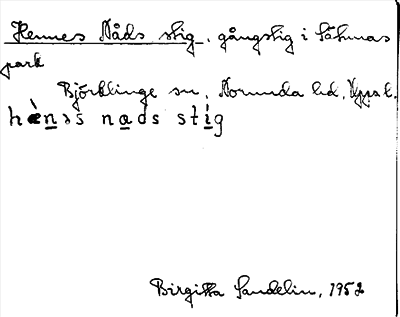 Hennes Nåds stig, gångstig i Sätunas
park
Björklinge sn, Norunda hd, Uppsal.
hænəs nads stig
Birgitta Sandelin, 1952